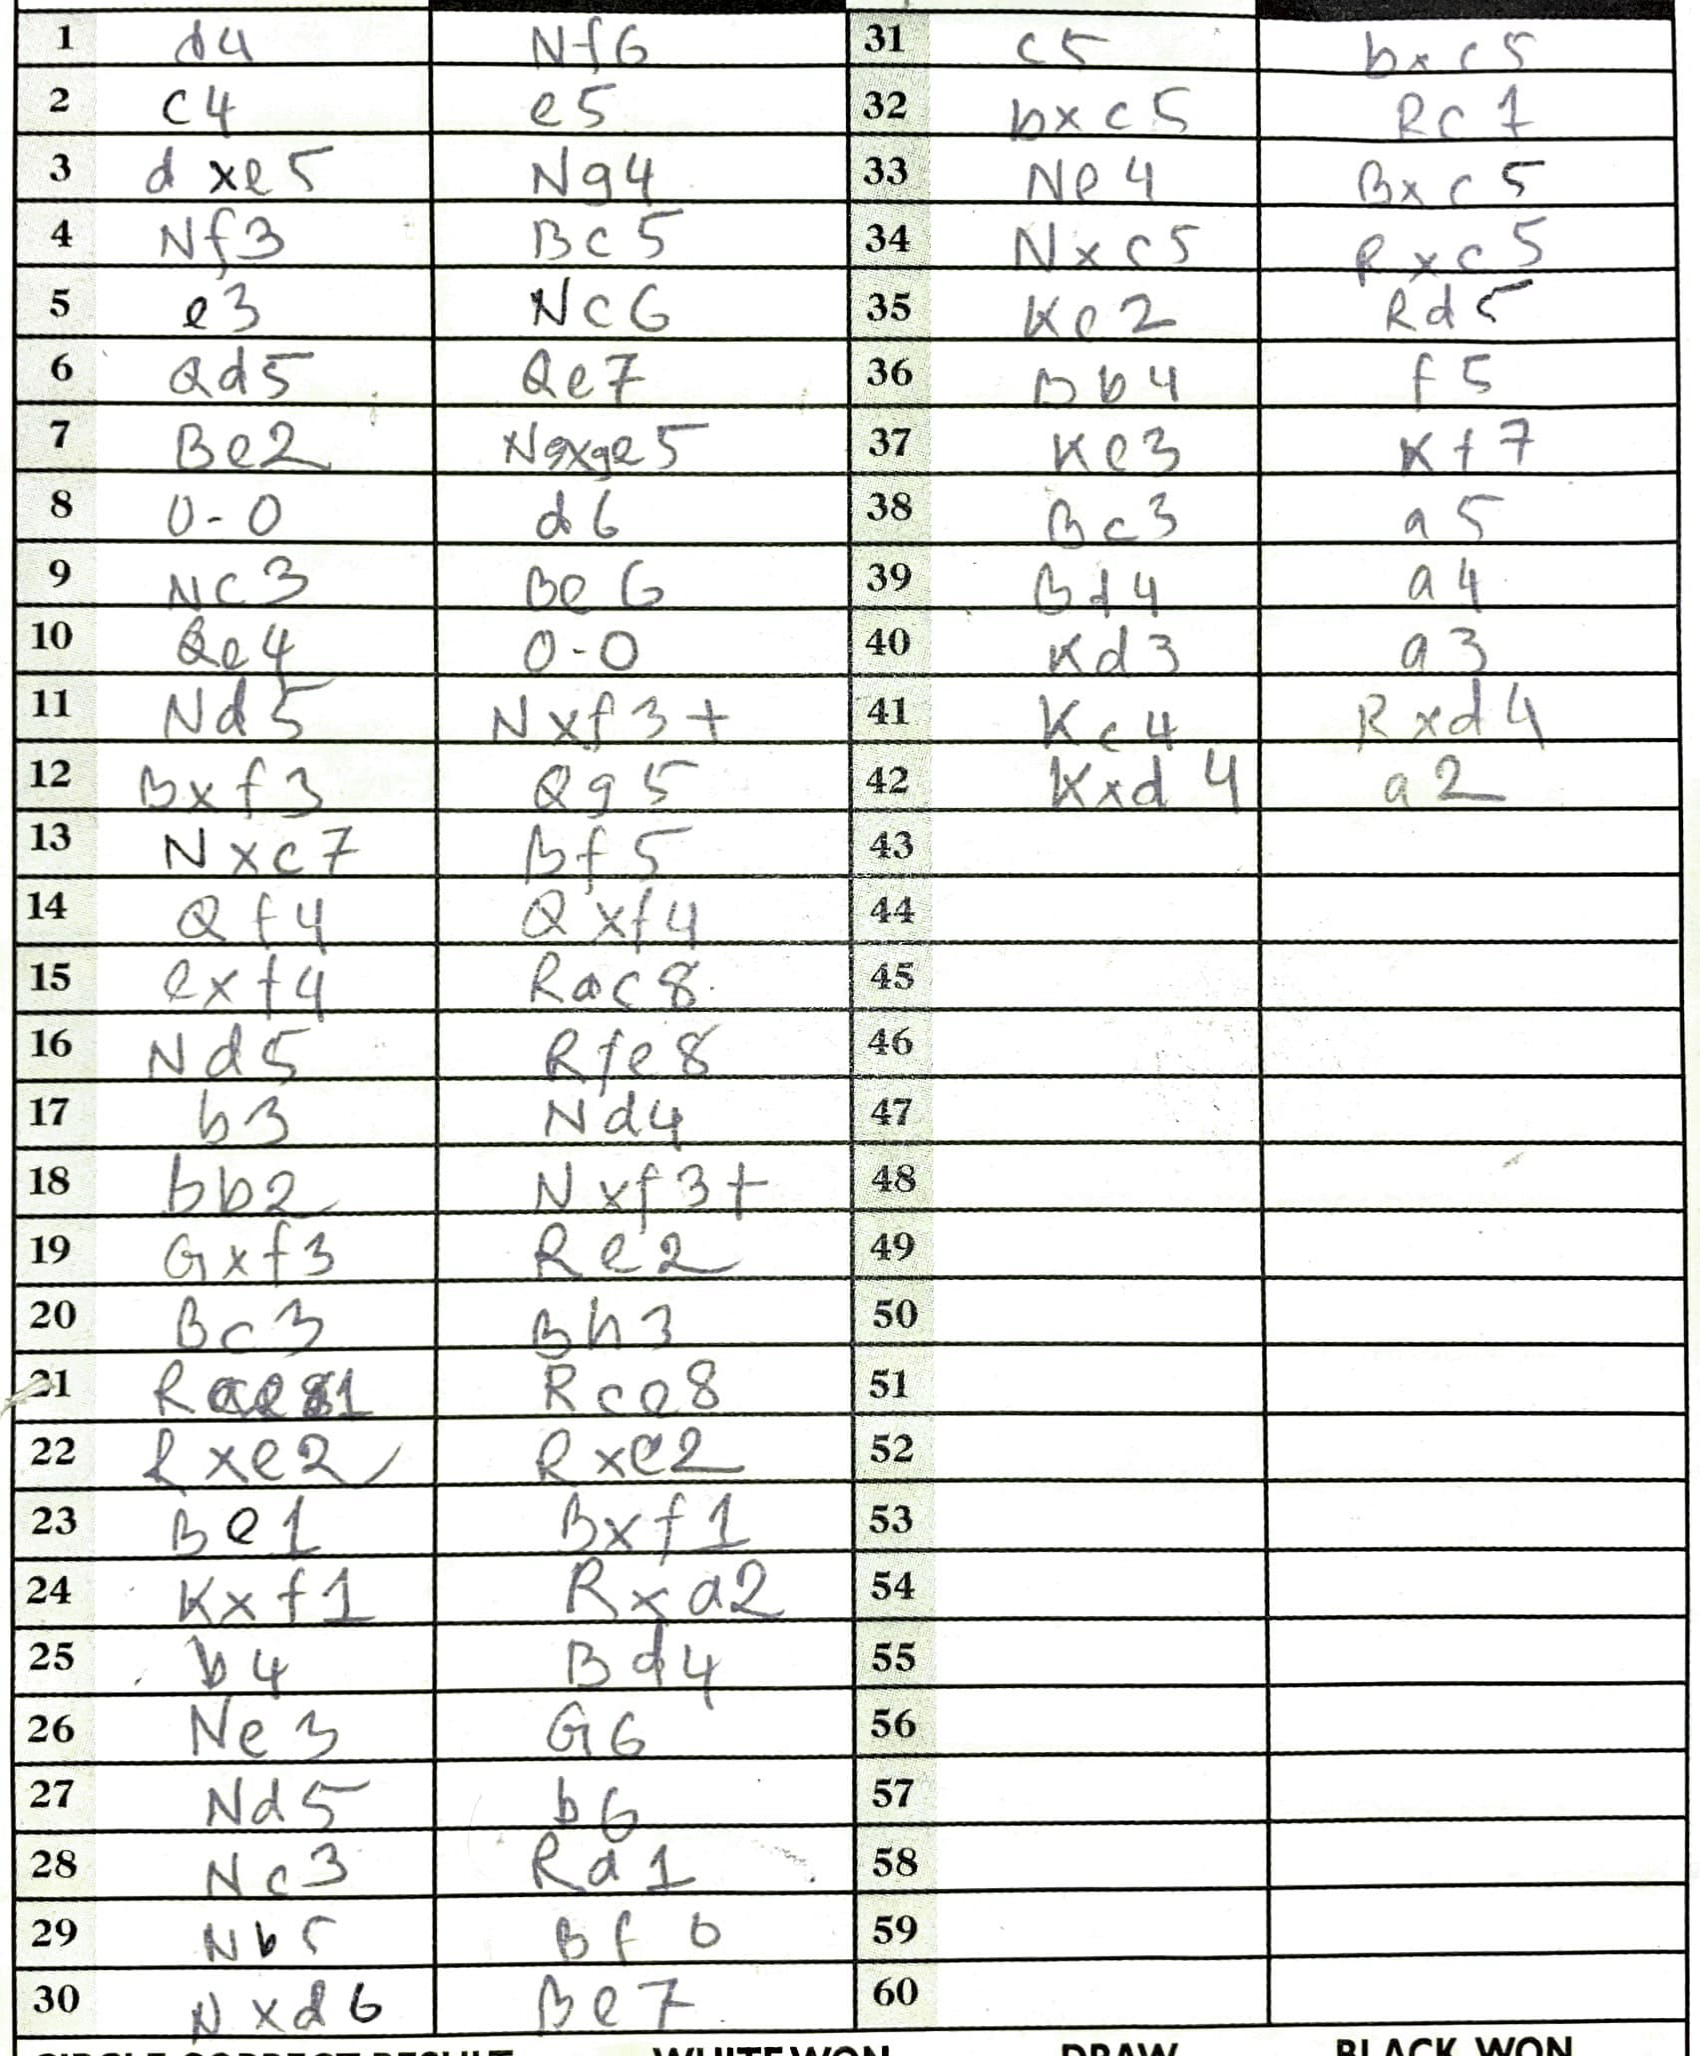 1 d4 Nf6 31 c5 bxc5
2 c4 e5 32 bxc5 Rc1
3 dxe5 Ng4 33 Ne4 Bxc5
4 Nf3 Bc5 34 Nxc5 Rxc5
5 e3 Nc6 35 Ke2 Rd5
6 Qd5 Qe7 36 Bb4 f5
7 Be2 Ngxe5 37 Ke3 Kf7
8 0-0 d6 38 Bc3 a5
9 Nc3 Be6 39 Bd4 a4
10 Qe4 0-0 40 Kd3 a3
11 Nd5 Nxf3+ 41 Kc4 Rxd4
12 Bxf3 Qg5 42 Kxd4 a2
13 Nxc7 Bf5 43
14 Qf4 Qxf4 44
15 exf4 Rac8 45
16 Nd5 Rfe8 46
17 b3 Nd4 47
18 bb2 Nxf3+ 48
19 Gxf3 Re2 49
20 Bc3 Bh3 50
21 Rae1 Rce8 51
22 Rxe2 Rxe2 52
23 Be1 Bxf1 53
24 Kxf1 Rxa2 54
25 b4 Bd4 55
26 Ne3 G6 56
27 Nd5 b6 57
28 Nc3 Ra1 58
29 Nb5 Bf6 59
30 Nxd6 Be7 60
CIRCLE CORRECT RESULT WHITE WON DRAW BLACK WON